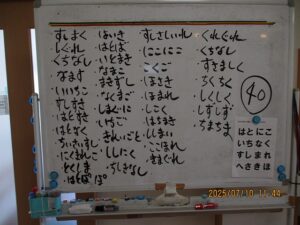 すまく
しぐれ
くちなし
なます
いいちこ
すしすき
はとすき
はとなく
ちいさいすし
にくまれこ
とくしま
はとぽっぽ
はいき
はとば
いとまき
なまこ
まきずし
なくまご
しまぐに
いちご
きれいごと
ししにく
ちしきなし
すしさしいれ
にこにこ
こくご
ほさき
ほまれ
しこく
はちまき
ししまい
ここほれ
きまぐれ
くれぐれ
くちなし
すさましく
ちくちく
しくしく
しずしず
ちまちま
40
はとにこ
いちなく
すしまれ
へさきほ
2025/07/10 11:44